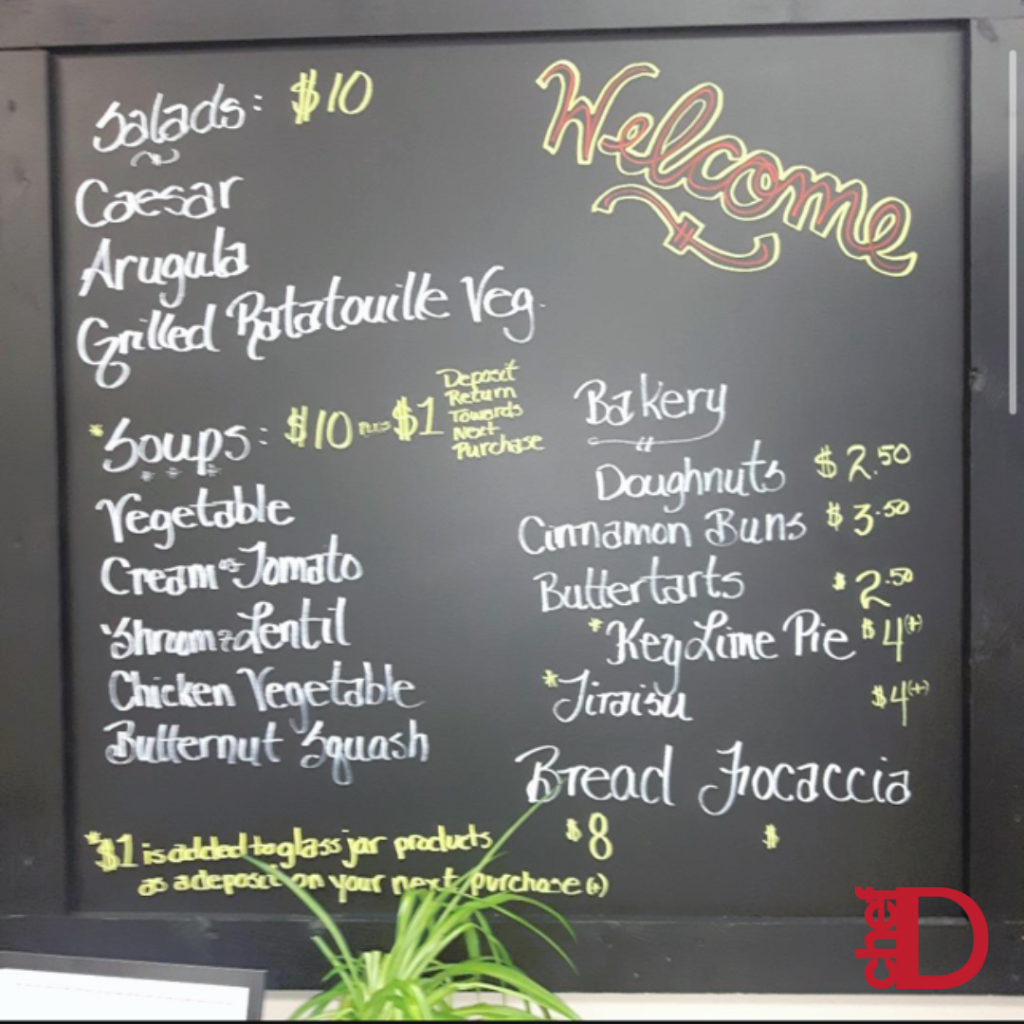 Welcome
Salads: $10
Caesar
Arugula
Grilled Ratatouille Veg.
*Soups: $10 plus $1 Deposit
Return
Towards
Next
Purchase
Vegetable
Cream of Tomato
'Shroom & Lentil
Chicken Vegetable
Butternut Squash
*$1 is added to glass jar products
as a deposit on your next purchase (+)
Bakery
Doughnuts $2.50
Cinnamon Buns $3.50
Buttertarts $2.50
*Key Lime Pie $4(+)
*Tiraisu $4(+)
Bread Focaccia
$8 $
chef D